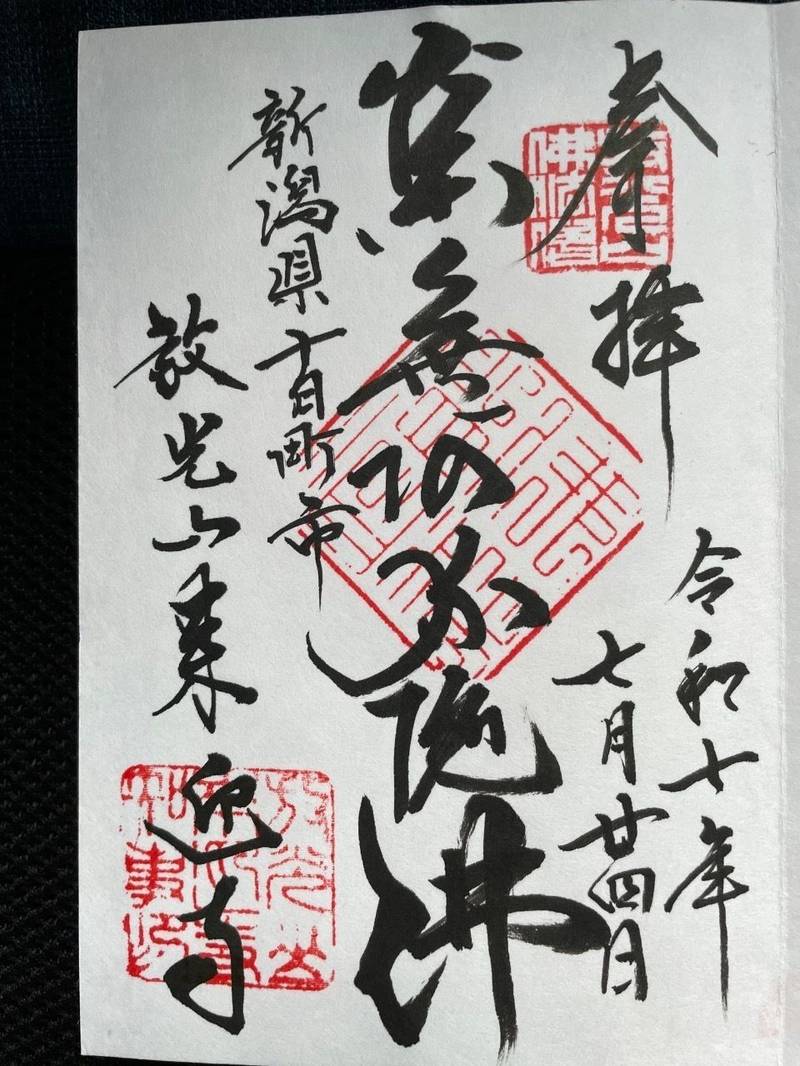 奉拝
令和七年
七月廿四日
南無阿弥陀佛
新潟県十日町市
放光山来迎寺